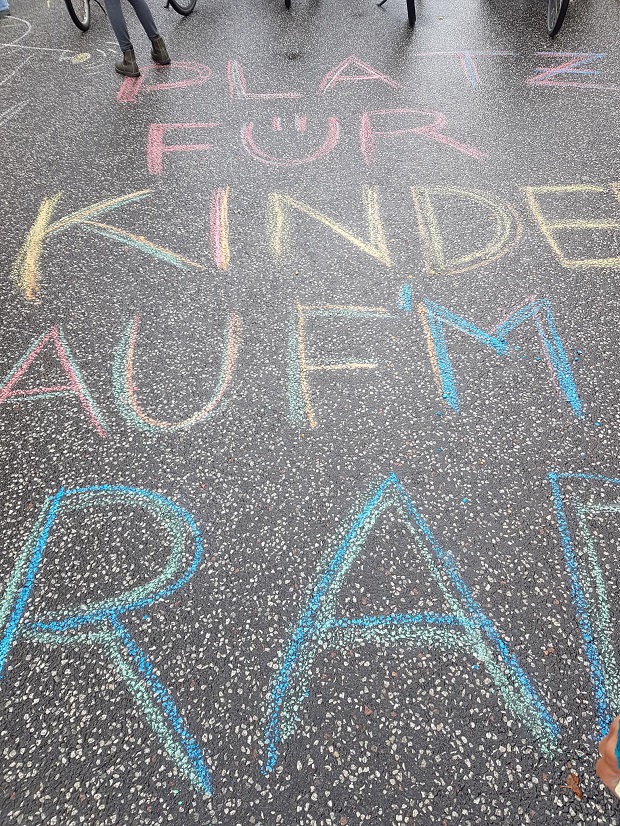 PLATZ
FÜR
KINDE
AUF'M
RAD